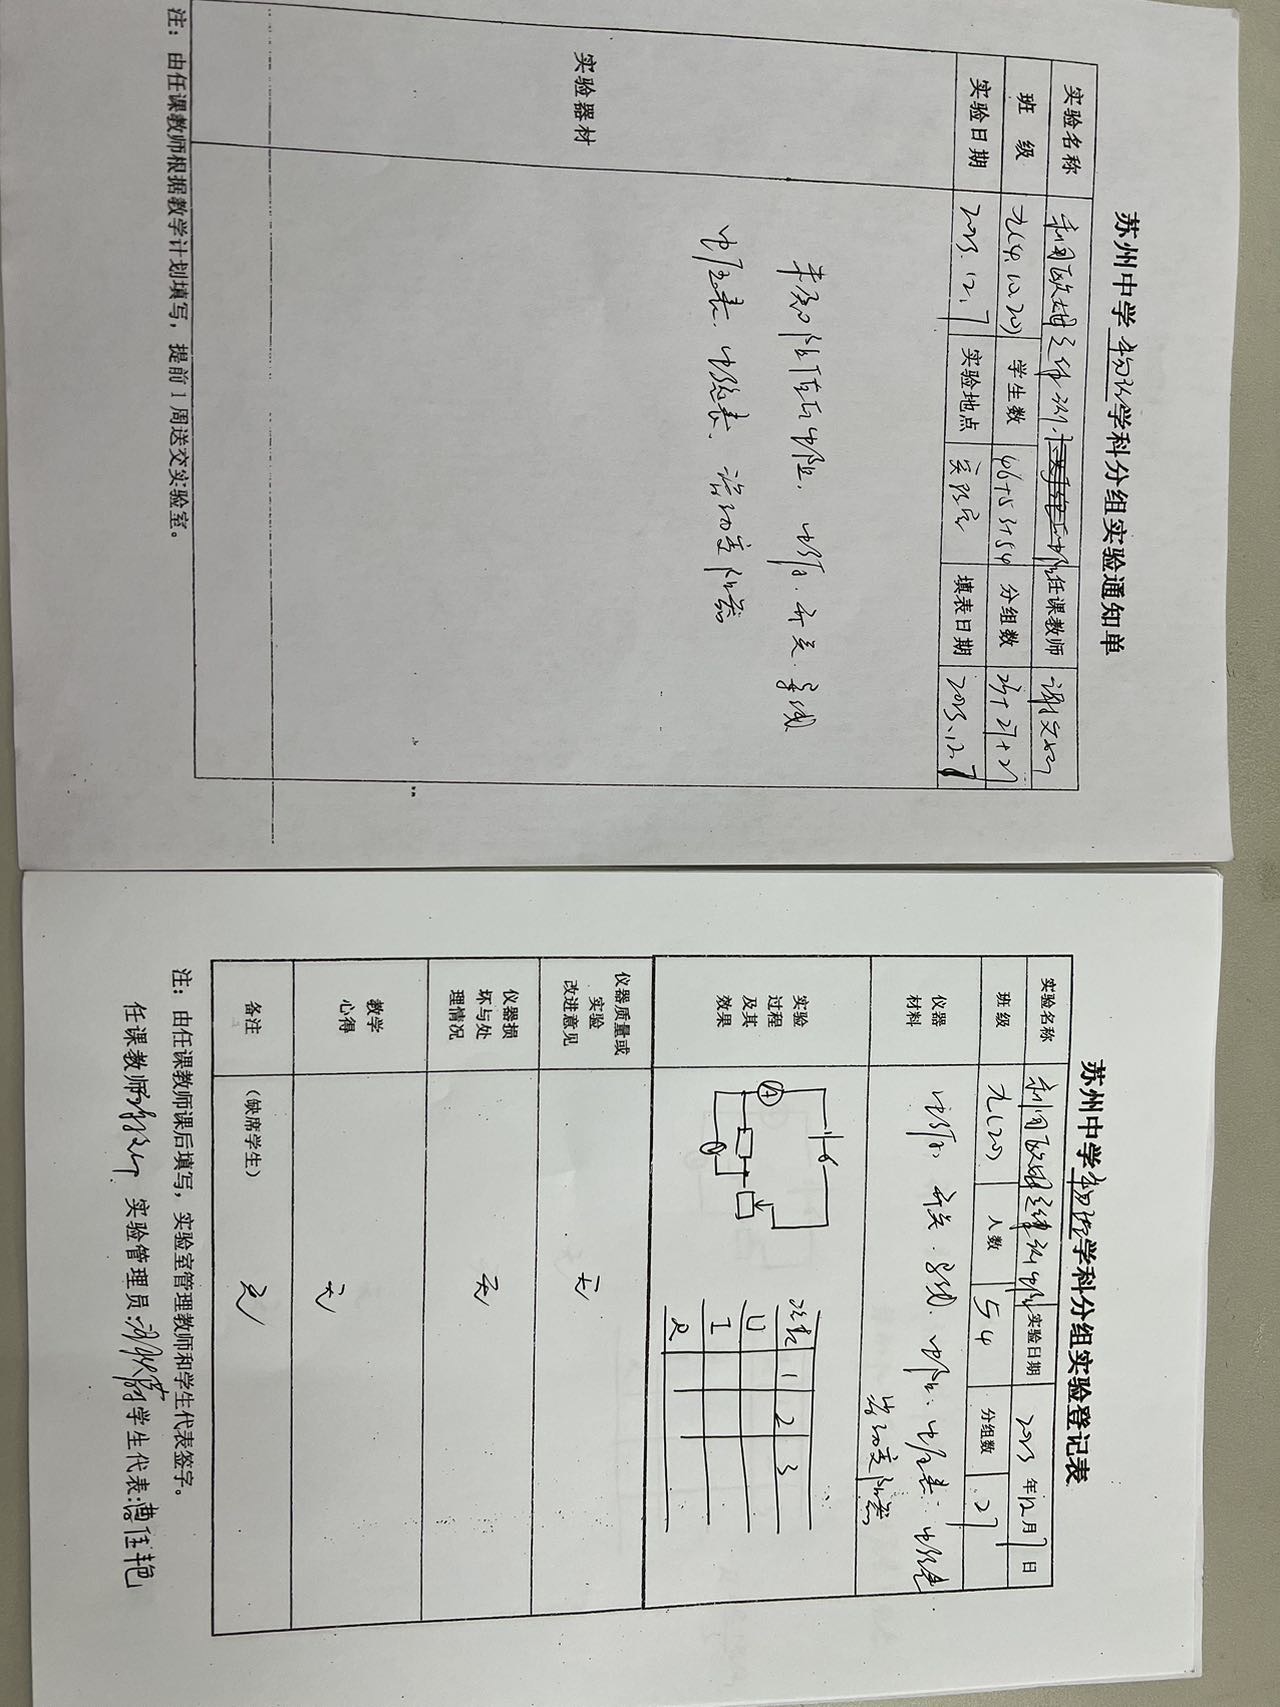 苏州中学初物理学科分组实验通知单
实验名称 利用欧姆定律测 电阻 任课教师
班级 九(4.10.20) 学生数 46+53+54 分组数 23+27+27
实验日期 2023.12.7 实验地点 实验室 填表日期 2023.12.7
实验器材
未知阻值的电阻、电源、开关、导线
电压表、电流表、滑动变阻器
注：由任课教师根据教学计划填写，提前1周送交实验室。
苏州中学初物理学科分组实验登记表
实验名称 利用欧姆定律测电阻 实验日期 2023年12月7日
班级 九(20) 人数 54 分组数 27
仪器材料 电源、开关、导线、电阻、电压表、电流表
滑动变阻器
实验过程及其效果
A
V
次数 1 2 3
U
I
R
仪器质量或实验改进意见 无
仪器损坏与处理情况 无
教学心得 无
备注 （缺席学生） 无
注：由任课教师课后填写，实验室管理教师和学生代表签字。
任课教师: 实验管理员: 学生代表:曹佳艳